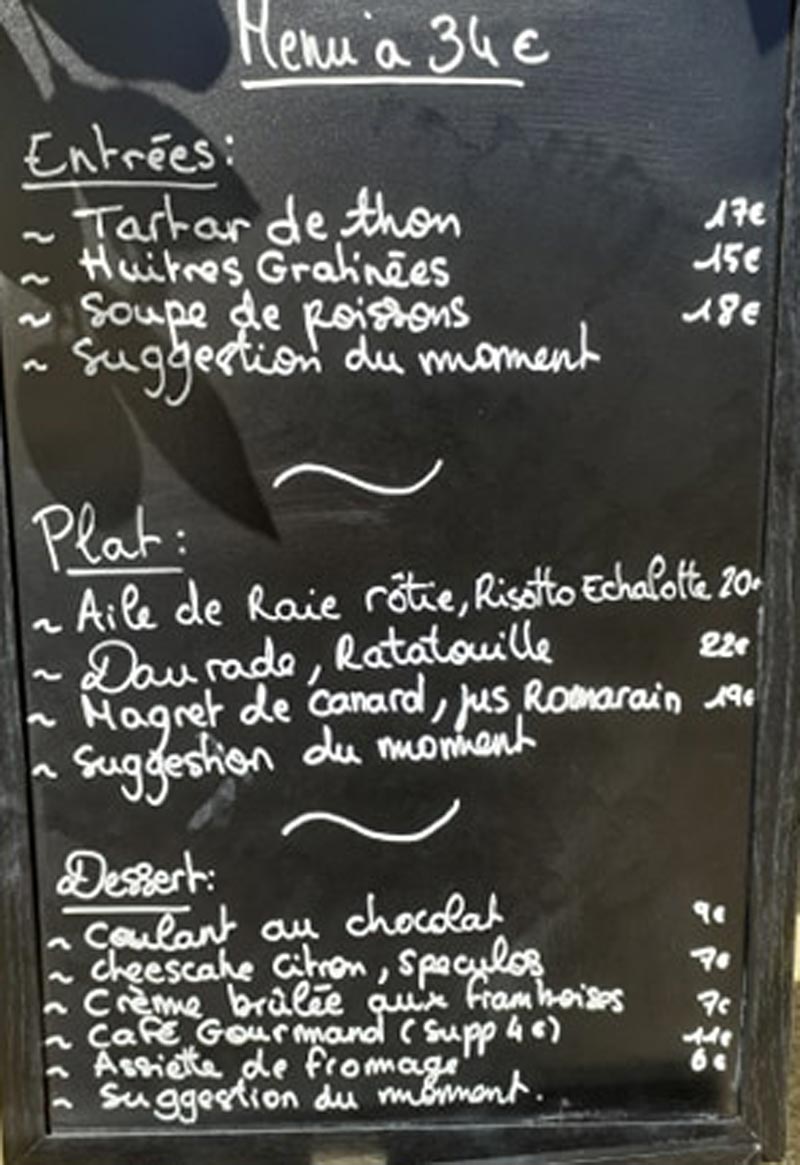 Menu à 34 €
Entrées:
~ Tartar de thon 17€
~ Huitres Gratinées 15€
~ Soupe de poissons 18€
~ Suggestion du moment
Plat:
~ Aile de Raie rôtie, Risotto Echalotte 20€
~ Daurade, Ratatouille 22€
~ Magret de canard, jus Romarain 19€
~ Suggestion du moment
Dessert:
~ Coulant au chocolat 9€
~ cheescake citron, speculos 7€
~ Crème brûlée aux framboises 7€
~ Café Gourmand (supp 4€) 11€
~ Assiette de fromage 6€
~ Suggestion du moment.